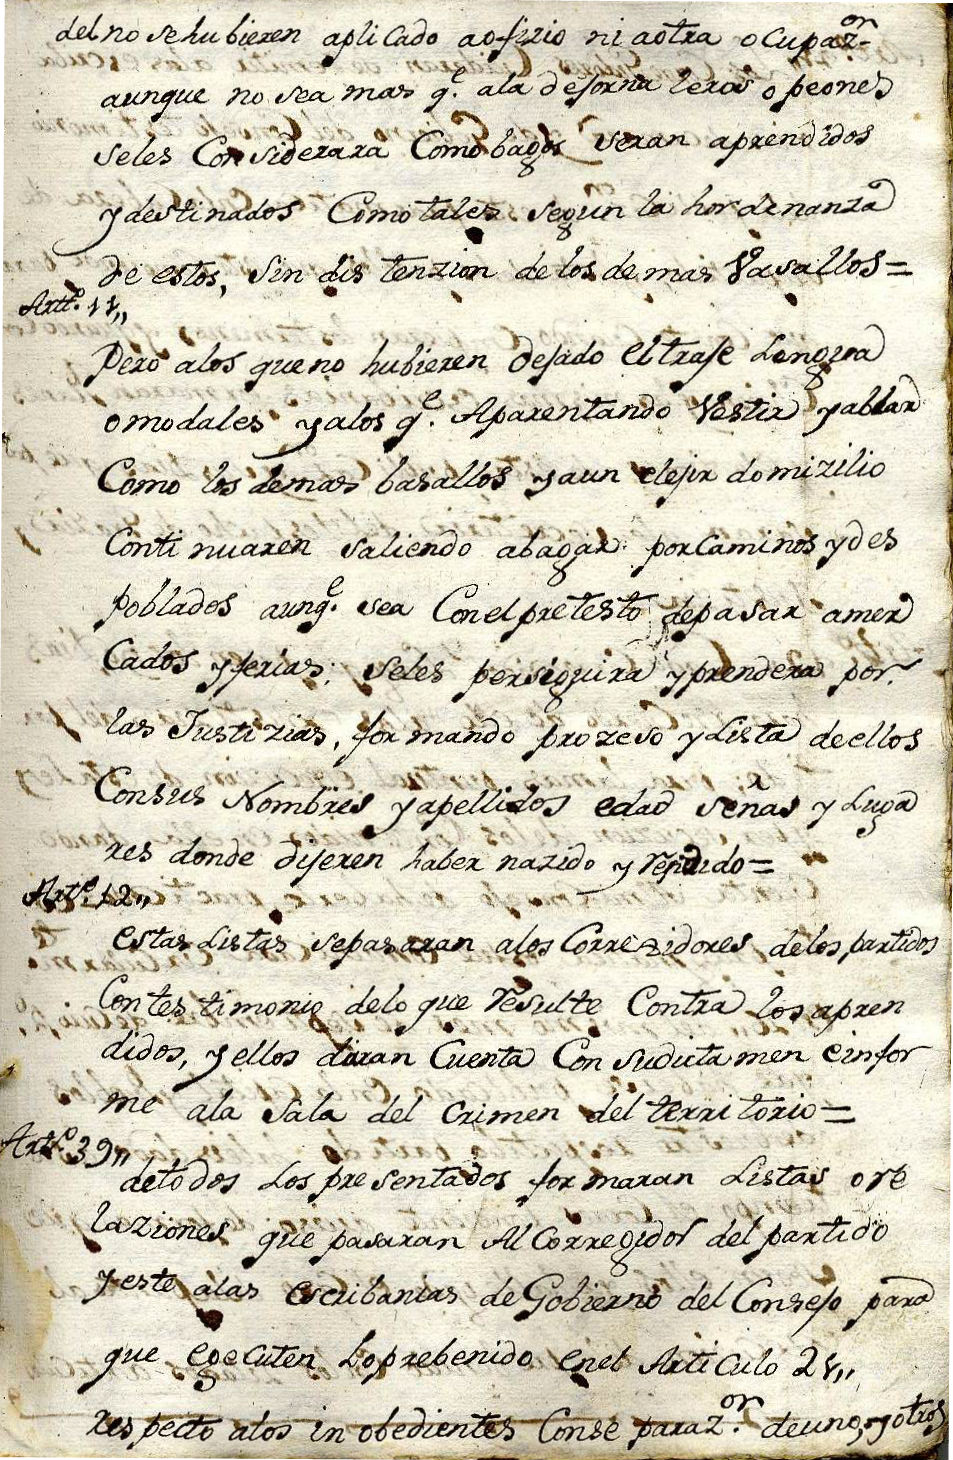 del no se hubieren aplicado aofizio ni aotra ocupazon
aunque no sea mas qe. ala de jornaleros o peones
seles Considerara Como bagos seran aprendidos
y destinados Como tales segun la hordenanza
de estos, sin distenzion de los demas Vasallos=
Artto. 11,,
Pero alos que no hubieren dejado el traje Lengua
o modales y alos qe. Aparentando Vestir y ablar
Como los demas basallos y aun elejir domizilio
Continuaren saliendo abagar por Caminos y des
poblados aunqe. sea Con el pretesto de pasar amer
Cados y ferias; seles perseguira y prendera por
las Justizias, formando prozeso y Lista de ellos
Con sus Nombres y apellidos edad señas y Luga
res donde dijeren haber nazido y residido=
Arte. 12,,
estas Listas se pasaran alos Corregidores delos partidos
Con testimonio delo que resulte Contra los apren
didos, y ellos daran Cuenta Con su dictamen e infor
me ala sala del crimen del territorio=
Arto. 39,,
de todos Los presentados formaran Listas o re
laziones que pasaran Al Corregidor del partido
y este alas escribanias de Gobierno del Consejo para
que egecuten Lo prebenido en el Articulo 28,,
respecto alos inobedientes Con separazon. de uno, y otros